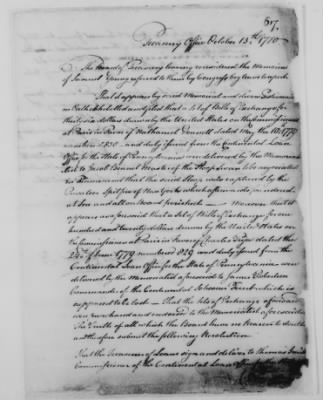 617.
Treasury Office October 13th 1780
The Board of Treasury having considered the Memorial of
Samuel referred to them by Congress beg leave to report
That it appears by said Memorial and
that a Set of Bills of Exchange for
thirty six dollars drawn by the United States on the Commissioners
at Paris in favor of Nathaniel dated May the 1779
number 2830 and duly issued from the Continental Loan
Office for the State of Pennsylvania were delivered by the Memorialist
to Jacob Master of the Ship to be negotiated
in that the said Ship was captured by the
Privateer Spitfire of New York which afterwards foundered
at Sea and all on board perished — Moreover that it
appears as aforesaid that a Set of Bills of Exchange for one
hundred and twenty dollars drawn by the United States on
the Commissioners at Paris in favor of Charles dated the
22d of June 1779 number 829 and duly issued from the
Continental Loan Office for the State of Pennsylvania were
delivered by the Memorialist aforesaid to James Robertson
Commander of the Continental which is
supposed to be lost — That the Sets of Exchange aforesaid
were purchased and endorsed to the Memorialist aforesaid
the truth of all which the Board have no Reason to doubt
and therefore submit the following Resolution
That the Treasurer of Loans sign and deliver to Thomas Smith
Commissioner of the Continental Loan Office